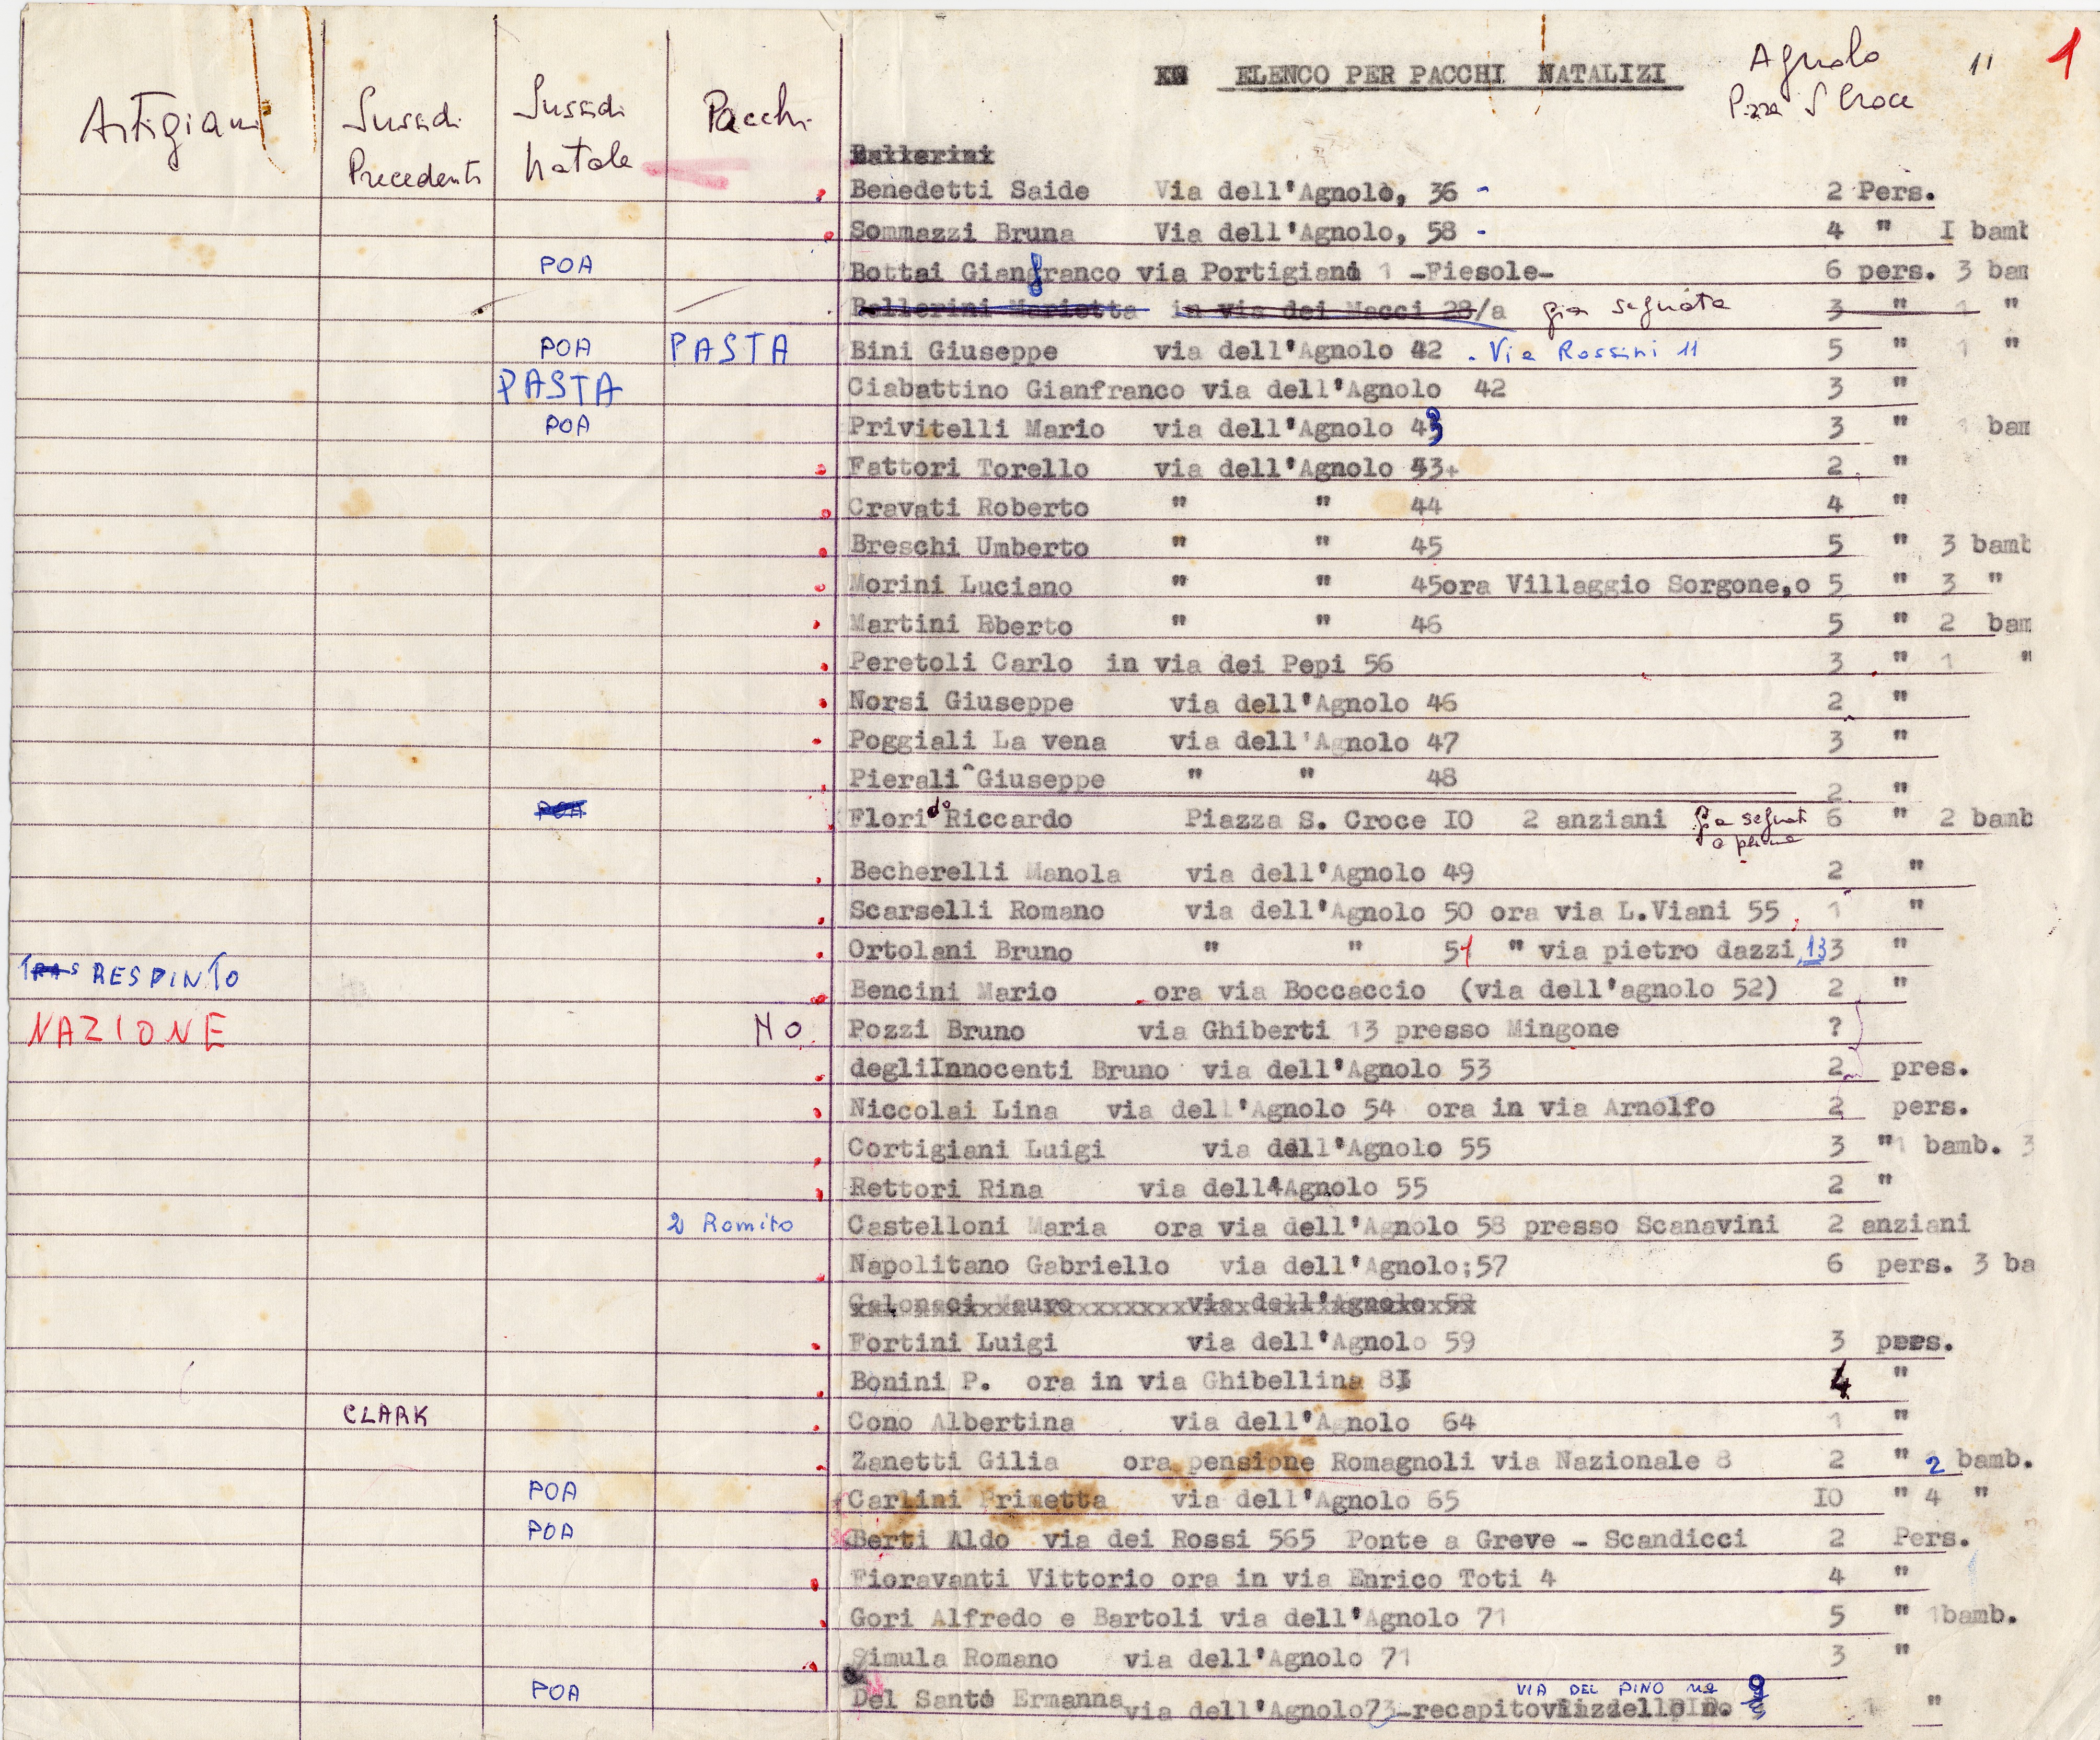 ELENCO PER PACCHI NATALIZI Agnolo " 1
P.zza S Croce
Artigiani Sussidi Precedenti Sussidi Natale Pacchi
Ballerini
Benedetti Saide Via dell'Agnolo, 36 - 2 Pers.
Sommazzi Bruna Via dell'Agnolo, 58 - 4 " I bamb
POA Bottai Gianfranco via Portigiani 1 -Fiesole- 6 pers. 3 bam
Ballerini Marietta in via dei Macci 28/a gia segnata 3 " 1 "
POA PASTA Bini Giuseppe via dell'Agnolo 42 . Via Rossini 11 5 " 1 "
PASTA Ciabattino Gianfranco via dell'Agnolo 42 3 "
POA Privitelli Mario via dell'Agnolo 43 3 " 1 bam
Fattori Torello via dell'Agnolo 53+ 2 "
Cravati Roberto " " 44 4 "
Breschi Umberto " " 45 5 " 3 bamb
Morini Luciano " " 45ora Villaggio Sorgone,o 5 " 3 "
Martini Eberto " " 46 5 " 2 bam
Peretoli Carlo in via dei Pepi 56 3 " 1 "
Norsi Giuseppe via dell'Agnolo 46 2 "
Poggiali La vena via dell'Agnolo 47 3 "
Pierali Giuseppe " " 48 2 "
POA Florido Riccardo Piazza S. Croce IO 2 anziani gia segnati 6 " 2 bamb
Becherelli Manola via dell'Agnolo 49 2 "
Scarselli Romano via dell'Agnolo 50 ora via L.Viani 55 1 "
Ortolani Bruno " " 51 " via pietro dazzi,13 3 "
RESPINTO Bencini Mario ora via Boccaccio (via dell'agnolo 52) 2 "
NAZIONE NO Pozzi Bruno via Ghiberti 13 presso Mingone ?
degliInnocenti Bruno via dell'Agnolo 53 2 pres.
Niccolai Lina via dell'Agnolo 54 ora in via Arnolfo 2 pers.
Cortigiani Luigi via dell'Agnolo 55 3 "1 bamb. 3
Rettori Rina via dell'Agnolo 55 2 "
2 Romito Castelloni Maria ora via dell'Agnolo 58 presso Scanavini 2 anziani
Napolitano Gabriello via dell'Agnolo;57 6 pers. 3 ba
Calonaci Mauro via dell'Agnolo 58
Fortini Luigi via dell'Agnolo 59 3 pers.
Bonini P. ora in via Ghibellina 8I 4 "
CLARK Cono Albertina via dell'Agnolo 64 1 "
Zanetti Gilia ora pensione Romagnoli via Nazionale 8 2 " 2 bamb.
POA Carlini Primetta via dell'Agnolo 65 IO " 4 "
POA Berti Aldo via dei Rossi 565 Ponte a Greve - Scandicci 2 Pers.
Fioravanti Vittorio ora in via Enrico Toti 4 4 "
Gori Alfredo e Bartoli via dell'Agnolo 71 5 " 1bamb.
Simula Romano via dell'Agnolo 71 3 "
VIA DEL PINO
POA Del Santo Ermanna via dell'Agnolo73-recapito 1 "